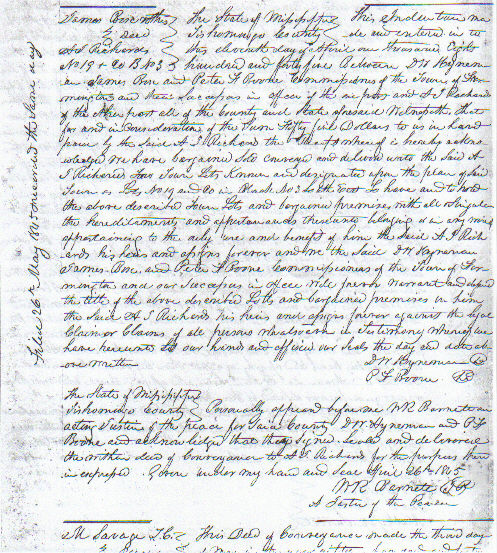 James Bone & others The State of Mississippi This Indenture ma
& Deed Tishomingo County de and entered in to
A I Richards this eleventh day of April one thousand Eight
No 19 & 20 B No 3 hundred and forty five Between D W Hyneman
James Bone and Peter F Boone Commissioners of the Town of Far
mington and their Successors in office of the one part and A I Richards
of the other part all of the County and State aforesaid Witnesseth that
for and in Consideration of the Sum Fifty five Dollars to us in hand
paid by the Said A I Richards the receipt whereof is hereby acknow
ledged We have bargained Sold Conveyed and delivered unto the Said A
I Richards Two Town Lots Known and designated upon the plan of Said
Town as Lots No 19 and 20 in Block No 3 South West To have and to hold
the above described Town Lots and bargained premises with all and singular
the hereditaments and appertenances thereunto belonging or in any wise
appertaining to the only use and benefit of him the Said A I Rich
ards his heirs and assigns forever and we the Said D W Hyneman
James Bone and Peter F Boone Commissioners of the Town of Far
mington and our Successors in office will forever Warrant and defend
the title of the above described Lots and bargained premises in him
the Said A I Richards his heirs and assigns forever against the legal
Claim or Claims of all persons whatsoever in Testimony Whereof we
have hereunto set our hands and affixed our Seals the day and date ab
ove written
D W Hyneman
P F Boone
The State of Mississippi
Tishomingo County Personally appeared before me W R Barnett an
acting Justice of the peace for Said County D W Hyneman and P F
Boone and acknowledged that they Signed Sealed and delivered
the within deed of Conveyance to A I Richards for the purposes there
in expressed Given under my hand and Seal April 26th 1845
W R Barnett
A Justice of the Peace
M Savage This Deed of Conveyance made the third day
Filed 26th May 1845 & recorded the Same day